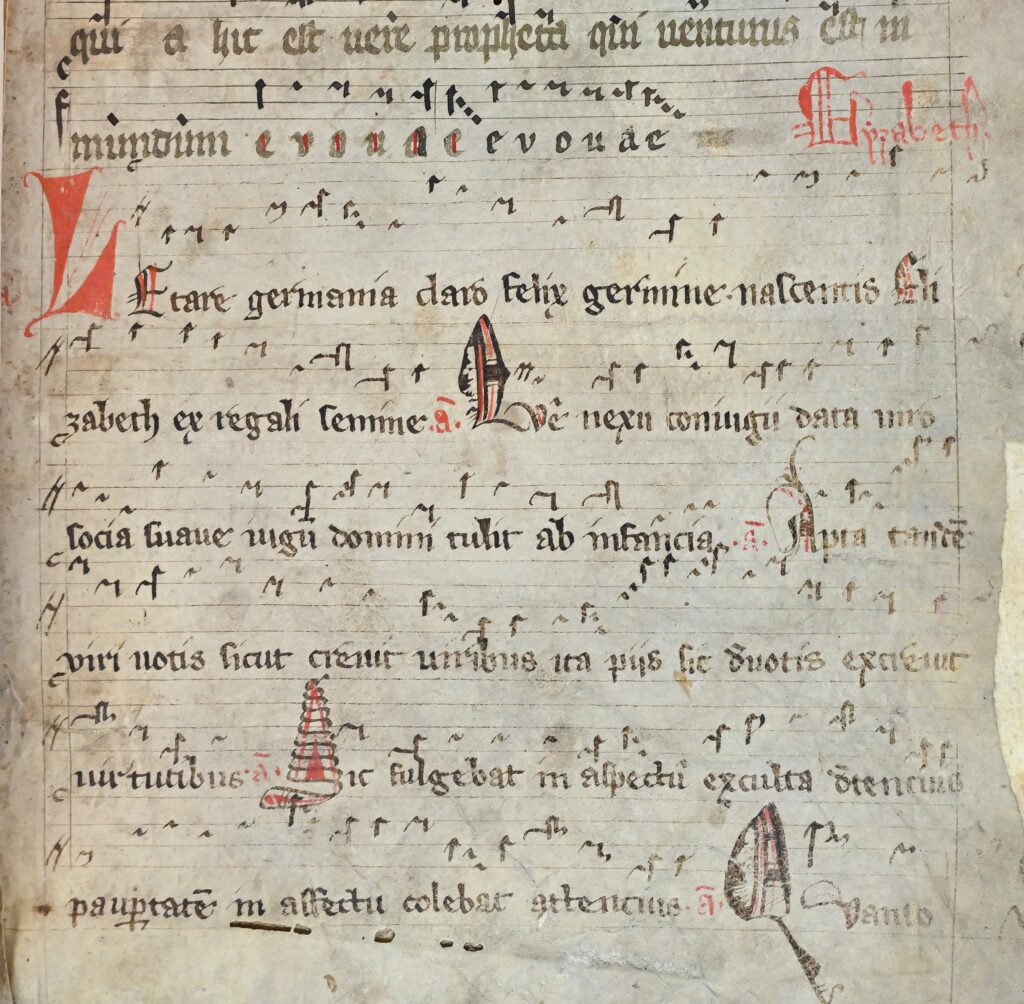 qui a hic est vere propheta qui uenturus est in
mūndum e v o u a e e v o u a e Elyzabeth
Letare germania claro felix germine nascentis Eli
zabeth ex regali semine. a. Que nexu coniugii data uiro
socia suaue iugū domini tulit ab infancia. a. Apta tandē
viri uotis sicut creuit uiribus ita piis sic d̄uotis excreuit
uirtutibus a. Hic fulgebat in aspectu exculta
paup̄tatē in affectu colebat attencius. a. Quanto